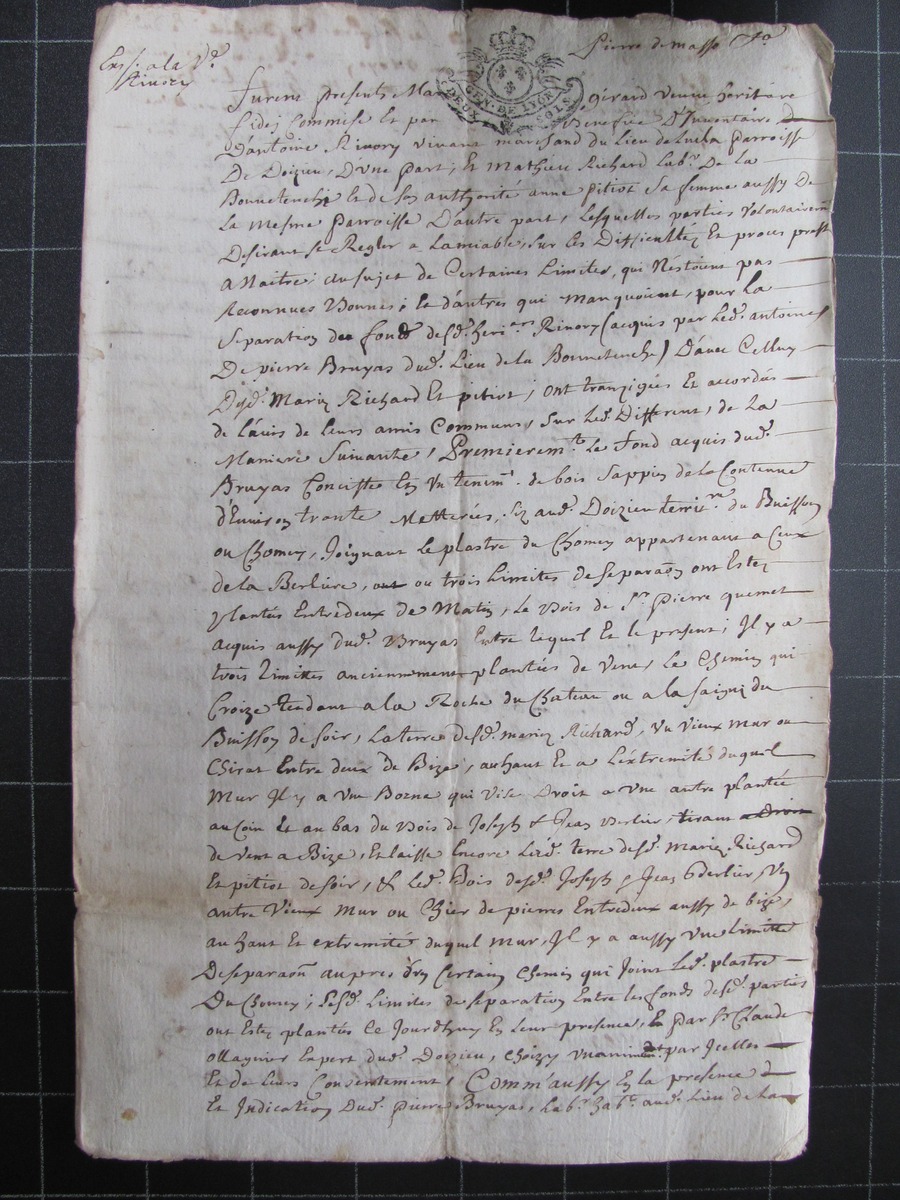 Pierre de masso
Exp. a la Ve
Rivory
GEN. DE LYON
DEUX SOLS
Furent presents Gérard veuve heritiere
fidei Commise Et par Benefice D'Inventaire
D'antoine Rivory vivant marchand du Lieu de parroisse
De Doizieu, D'Vne part, Et Mathieu Richard Labr. De La
Bonnetenche Et de son authorité anne pitiot Sa femme aussy De
La Mesme parroisse D'autre part, Lesquelles parties volontairemt
Desirant se Regler a Lamiable, sur Les Difficultez Et proces prest
a Naitre; au sujet de Certaines Limites, qui N'estoient pas
Reconnues Bonnes, Et d'autres qui manquoient, pour La
Separation des fonds desd. Rivory (acquis par Led. antoine
De pierre Bruyas dud. Lieu de la Bonnetenche) D'avec Celluy
Desd. Mariez Richard Et pitiot, ont tranzigés Et accordés
de L'avis de Leurs amis Communs, Sur Led. Different, de La
Maniere Suivante, Premieremt. Le fond acquis dud.
Bruyas Conciste En Vn tenemt. de bois Sappin de la Contenue
d'Environ trante Metterées, aud. Doizieu du Buisson
ou Chomey, Joignant Le plastre du Chomey appartenant a Ceux
de la Berlure, ou trois Limites de separaon ont Estez
plantés Entredeux de Matin, Le Bois de Sr. Pierre quemet
acquis aussy dud. Bruyas Entre Lequel Et le present, Il y a
trois Limittes anciennement plantées de vent, Le Chemin qui
Croize tendant a la Roche du Chateau ou a la Saigni du
Buisson de soir, La terre desd. mariez Richard, Vn Vieux Mur ou
Chirat Entre deux de Bize, au haut Et a L'extremité duquel
Mur Il y a Vne Borne qui Vise Droit a Vne autre plantée
au Coin Et au bas du Bois de Joseph & Jean Berlier, tirant a Droit
de Vent a Bize, Et laisse Encore Lad. terre desd. Mariez Richard
Et pitiot de soir, & Led. Bois desd. Joseph & Jean Berlier, Vn
autre Vieux Mur ou Chier de pierres Entredeux aussy de bize,
au haut Et extremité duquel mur, Il y a aussy Vne Limitte
De separaon aupres d'un Certain Chemin qui Joint Led. plastre
Du Chomey; Lesd. Limites de separation Entre Les fonds desd. parties
ont Estez plantés Ce Jourdhuy En Leur presence, Par Sr. Claude
ollagnier Expert dud. Doizieu, Choizy Vnanimemt par Icelles
Et de Leurs Consentement, Comm'aussy En la presence
Et Indication Dud. pierre Bruyas, Labr. habt. aud. Lieu de La